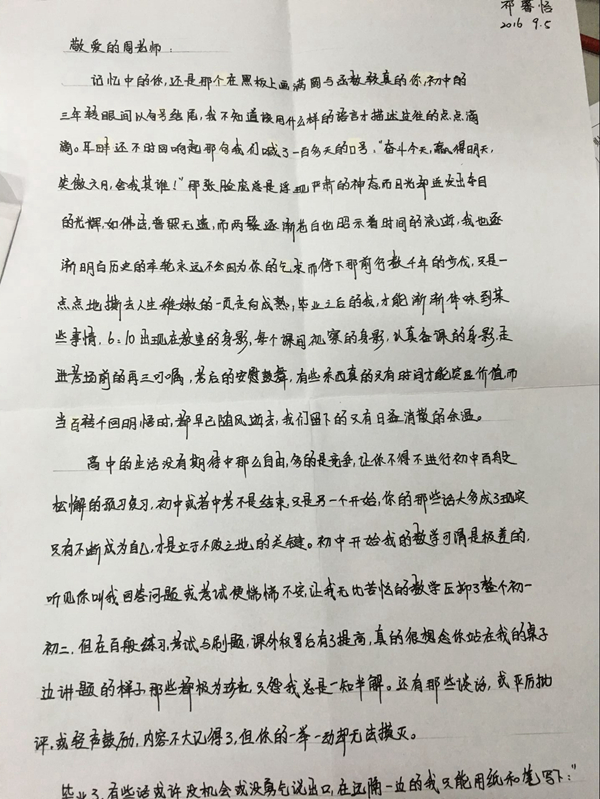 祁睿恬
2016 9.5
敬爱的周老师:
记忆中的你,还是那个在黑板上画满圆与函数较真的你,初中的
三年转眼间以句号结尾,我不知道该用什么样的语言才描述过往的点点滴
滴。耳畔还不时回响起那句我们喊了一百多天的口号,“奋斗今天,赢得明天,
笑傲六月,舍我其谁!”那张脸庞总是浮现严肃的神态而目光却迸发出夺目
的光辉,如佛法,普照无遗,而两鬓逐渐苍白也昭示着时间的流逝,我也逐
渐明白历史的车轮永远不会因为你的乞求而停下那前行数千年的步伐,只是一
点点地撕去人生稚嫩的一页走向成熟,毕业之后的我,才能渐渐体味到某
些事情,6:10出现在教室的身影,每个课间视察的身影,认真备课的身影,走
进考场前的再三叮嘱,考后的安慰鼓舞,有些东西真的只有时间才能突显价值,而
当百转千回明悟时,都早已随风逝去,我们留下的只有日益消散的余温。
高中的生活没有期待中那么自由,多的是竞争,让你不得不进行初中百般
松懈的预习复习,初中或者中考不是结束,只是另一个开始,你的那些话大多成了现实
只有不断成为自己,才是立于不败之地的关键。初中开始我的数学可谓是极差的,
听见你叫我回答问题或考试便惴惴不安,让我无比苦恼的数学压抑了整个初一
初二,但在百般练习,考试与刷题,课外权着后有了提高,真的很想念你站在我的桌子
边讲题的样子,那些都极为珍贵,只怨我总是一知半解。还有那些谈话,或严厉批
评,或轻声鼓励,内容不大记得了,但你的一举一动却无法磨灭。
毕业了,有些话或许没机会或没勇气说出口,在远隔一边的我只能用纸和笔写下:“